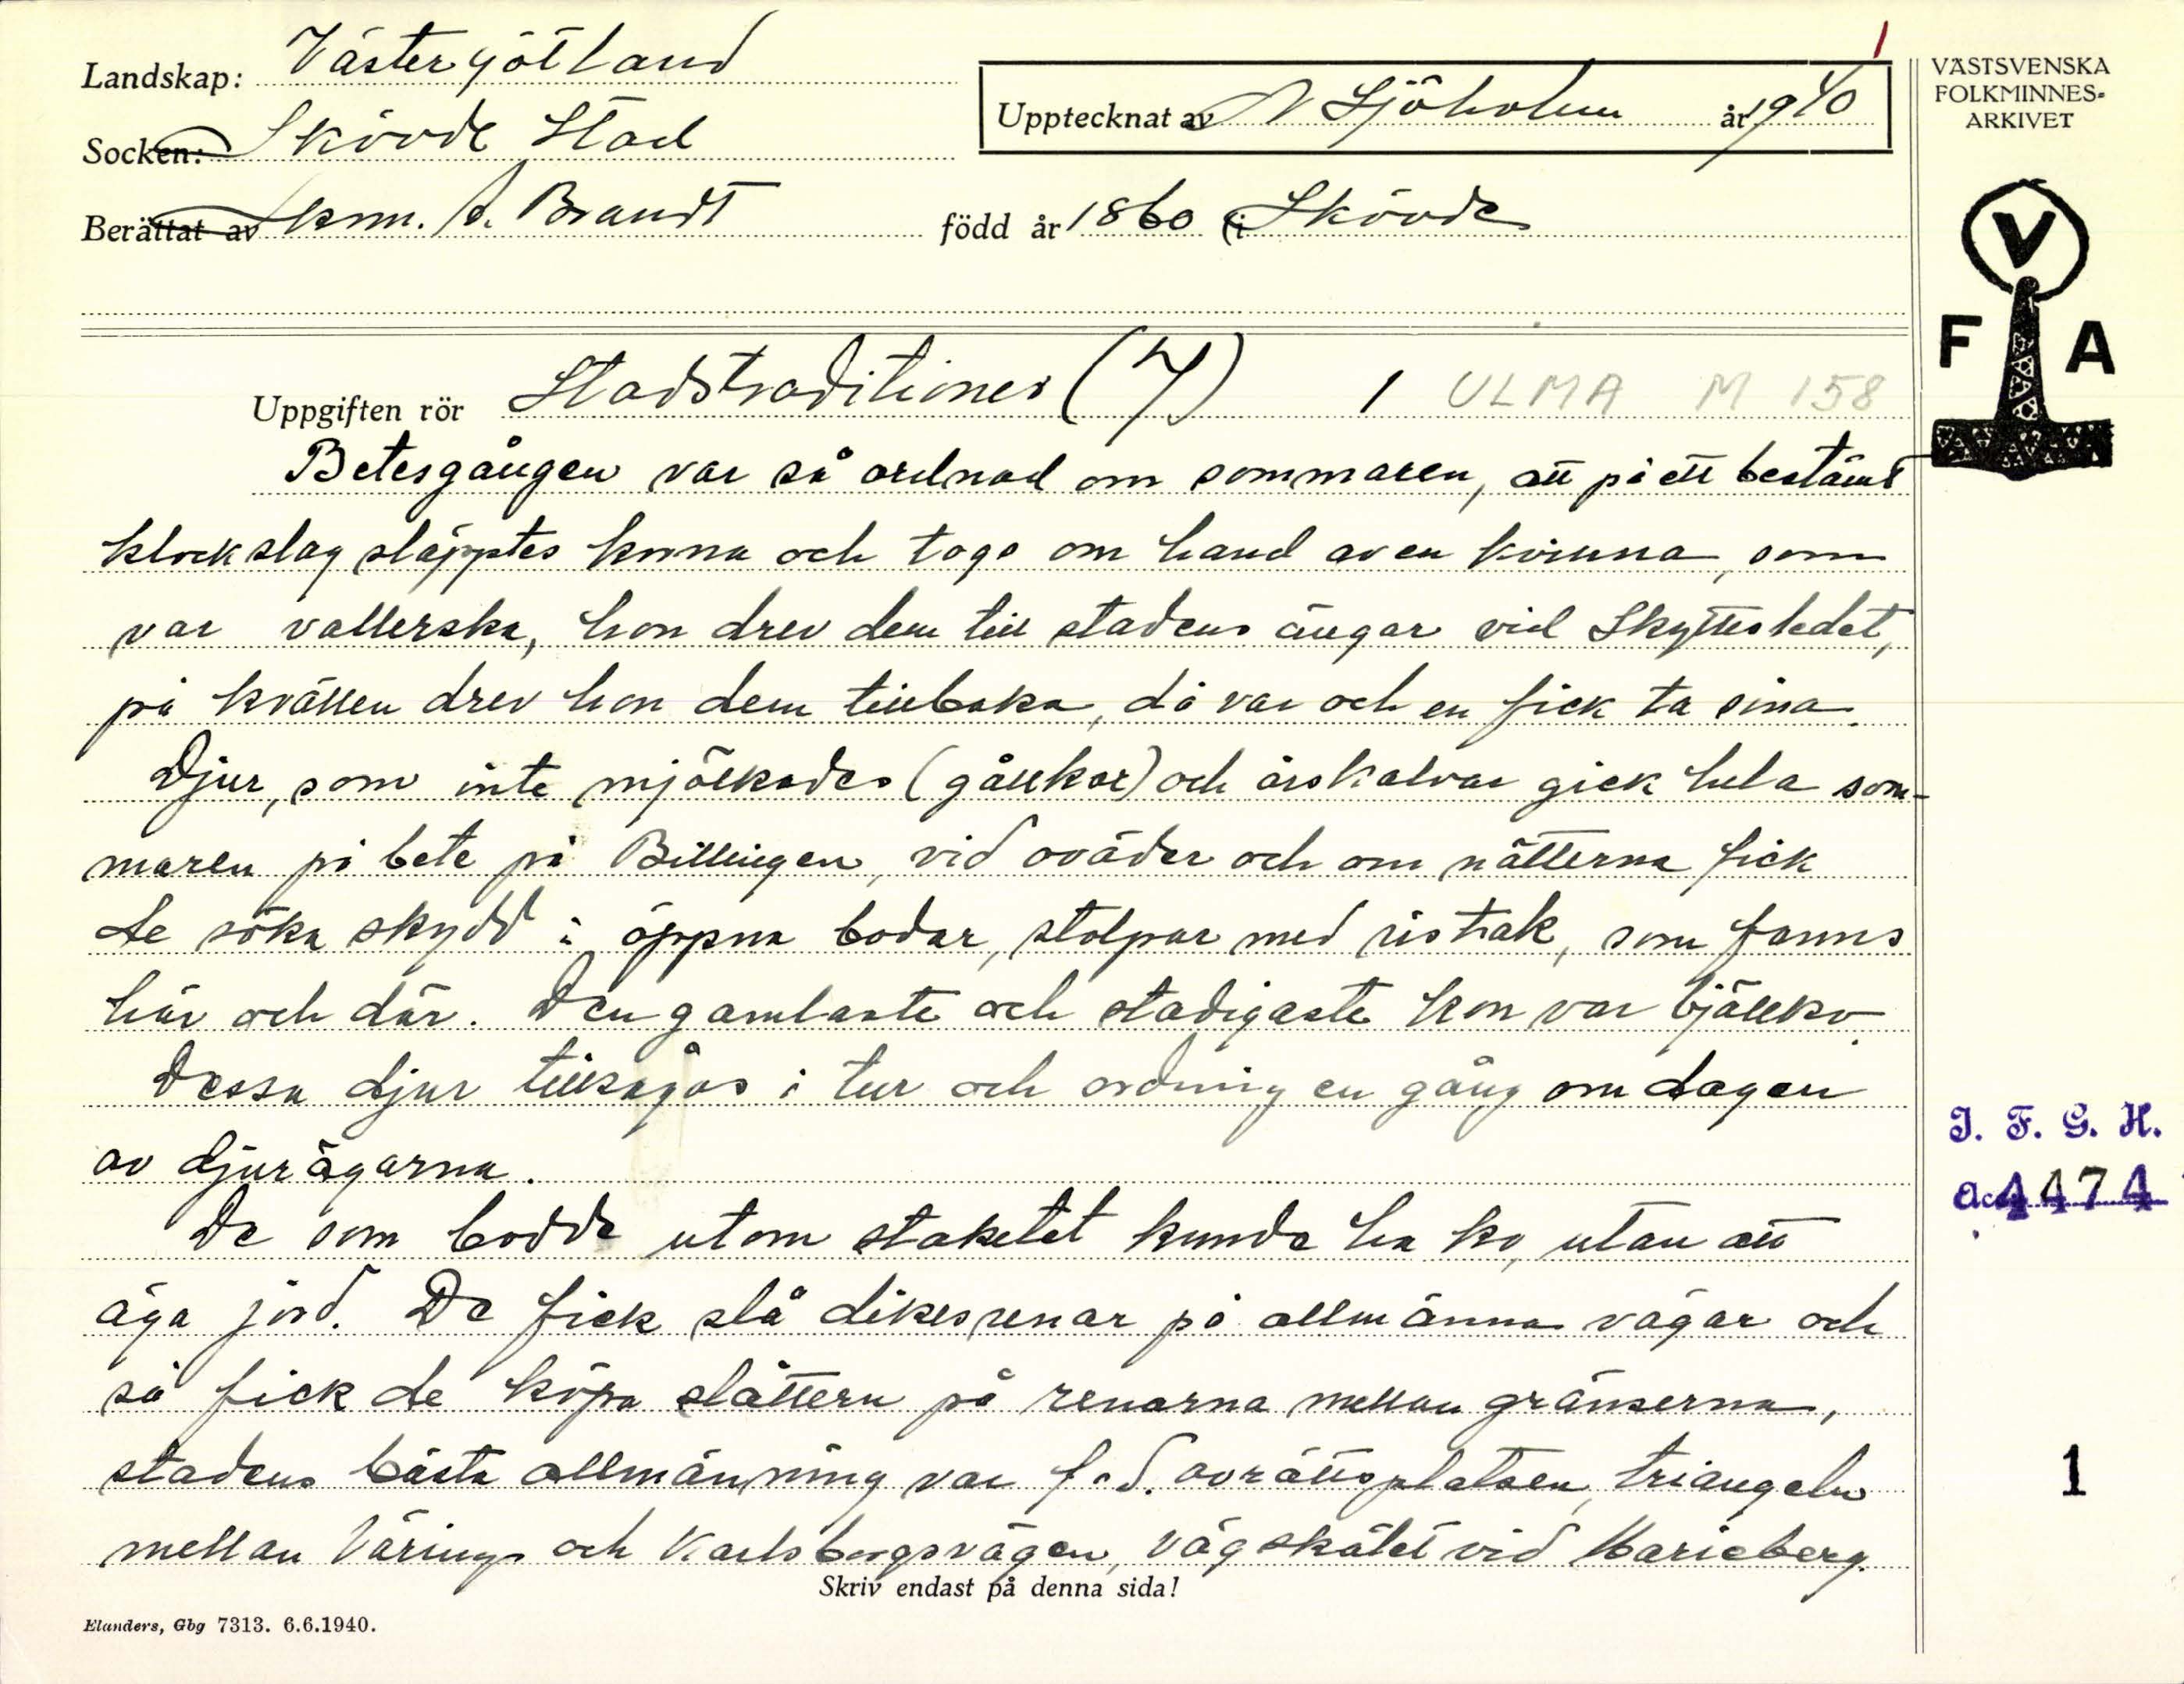 Landskap: Västergötland
Socken: Skövde Stad
Berättat av km. A. Brandt född år 1860 i Skövde
Upptecknat av N Sjöholm år 1940
1
VÄSTSVENSKA
FOLKMINNES-
ARKIVET
V
F A
Uppgiften rör Stadstraditioner (7) 1 ULMA M 158
Betesgången var så ordnad om sommaren, att på ett bestämt
klockslag släpptes korna och togs om hand av en kvinna, som
var vallerska, hon drev dem till stadens ängar vid Skyttesledet,
på kvällen drev hon dem tillbaka, då var och en fick ta sina.
Djur, som inte mjölkades (gållkor) och årskalvar gick hela som-
maren på bete på Billingen, vid oväder och om nätterna fick
de söka skydd i öppna bodar, stolpar med ristak, som fanns
här och där. Den gamlaste och stadigaste kon var bjällko.
Dessa djur tillsågos i tur och ordning en gång om dagen
av djurägarna.
De som bodde utom staketet kunde ha ko, utan att
äga jord. De fick slå dikesrenar på allmänna vägar och
så fick de köpa slåttern på renarna mellan gränserna,
stadens bästa allmänning var f.d. avrättsplatsen, triangeln
mellan Värings och Karlsborgsvägen, vägskälet vid Marieberg.
Skriv endast på denna sida!
Elanders, Gbg 7313. 6.6.1940.
I. F. G. H.
Acc 4474
1